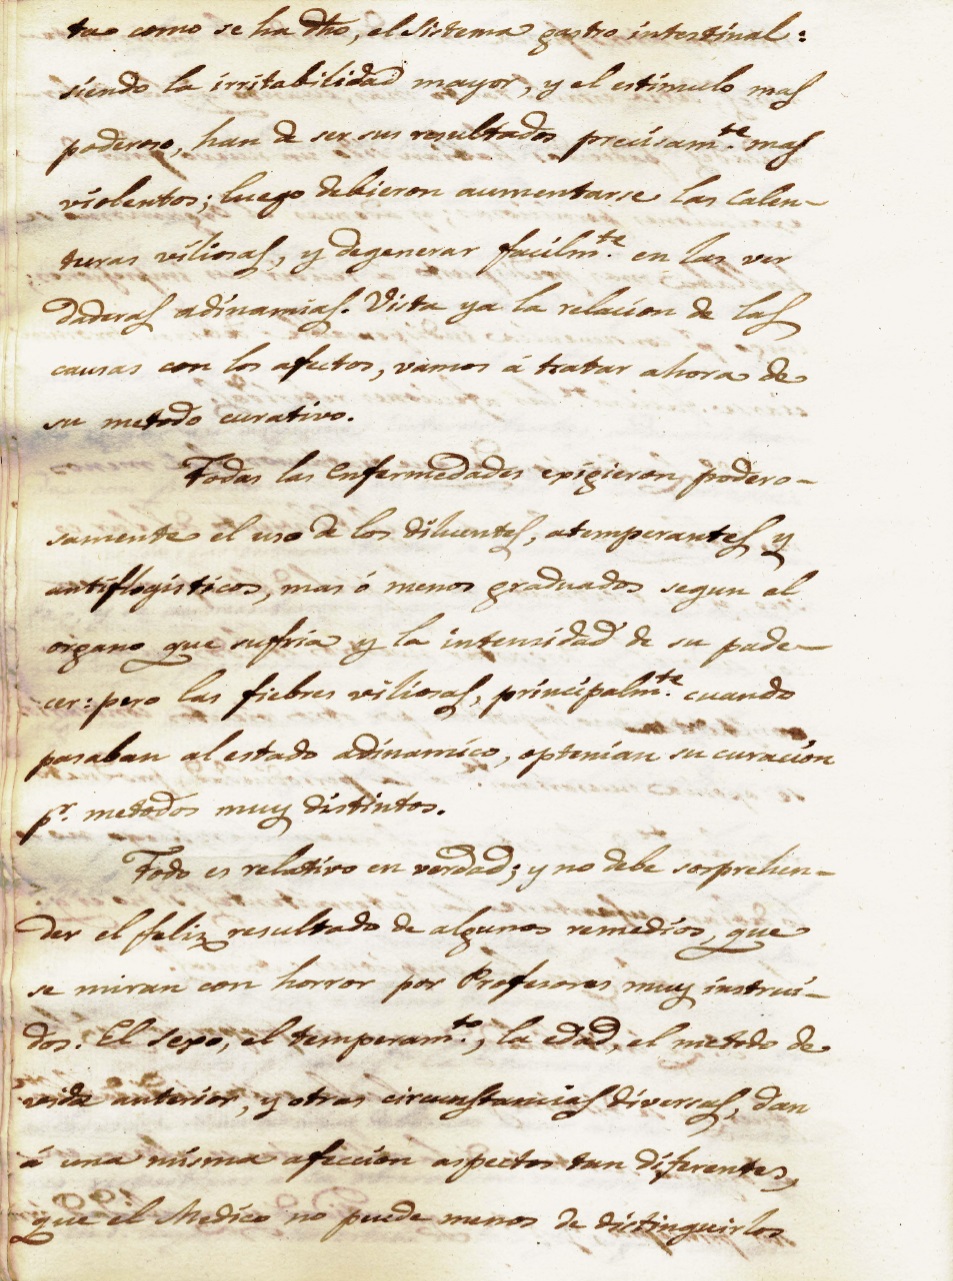 tao como se ha dho, el sistema gastro intestinal:
siendo la irritabilidad mayor, y el estimulo mas
poderoso, han de ser sus resultados precisam.te mas
violentos; luego debieron aumentarse las Calen-
turas viliosas, y degenerar facilm.te en las ver
daderas adinamias. Vista ya la relacion de las
causas con los afectos, vamos á tratar ahora de
su metodo curativo.
Todas las enfermedades exigieron podero-
samente el uso de los diluentes, atemperantes y
antiflogisticos, mas ó menos graduados segun el
organo que sufria y la intensidad de su pade-
cer: pero las fiebres viliosas, principalm.te cuando
pasaban al estado adinamico, optenian su curacion
p.r metodos muy distintos.
Todo es relativo en verdad; y no debe sorprehen-
der el feliz resultado de algunos remedios, que
se miran con horror por Profesores muy instrui-
dos. El sexo, el temperam.to, la edad, el metodo de
vida anterior, y otras circunstancias diversas, dan
á una misma afeccion aspectos tan diferentes,
que el Medico no puede menos de distinguirlos